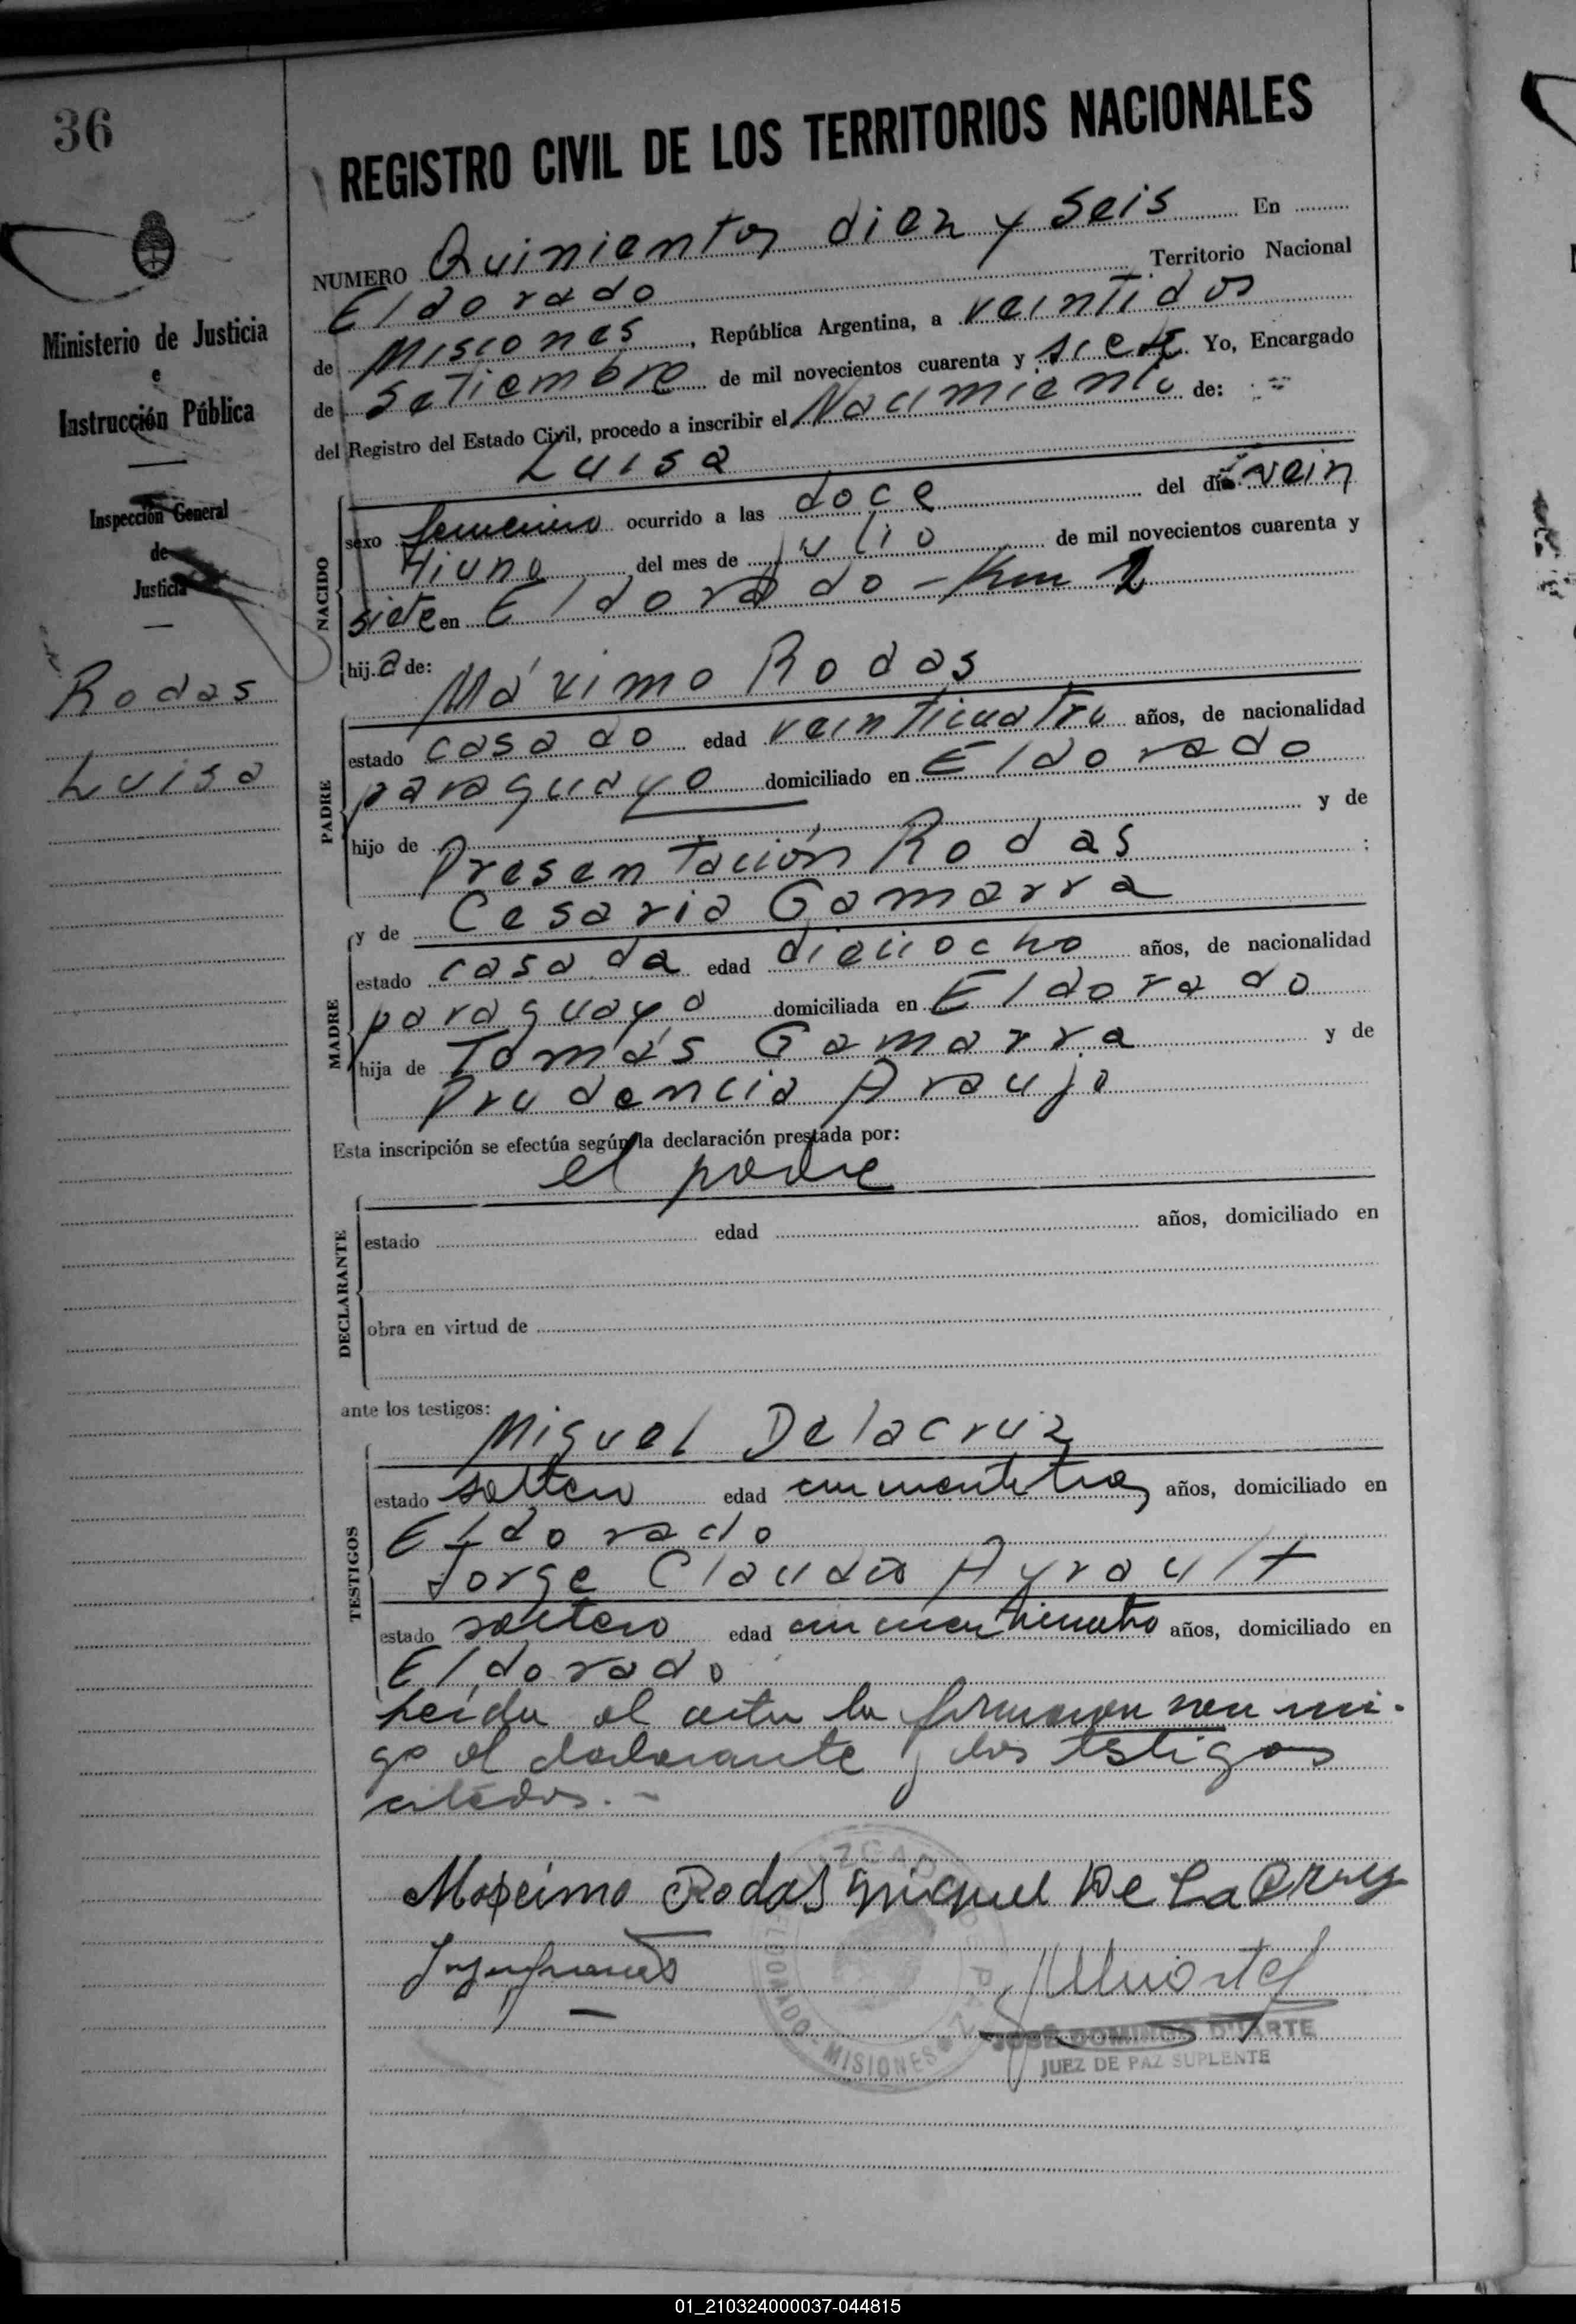 36
Ministerio de Justicia
e
Instrucción Pública
Inspección General
de
Justicia
Rodas
Luisa
REGISTRO CIVIL DE LOS TERRITORIOS NACIONALES
NUMERO Quinientos diez y seis En
Eldorado Territorio Nacional
de Misiones, República Argentina, a veintidos
de Setiembre de mil novecientos cuarenta y siete. Yo, Encargado
del Registro del Estado Civil, procedo a inscribir el Nacimiento de:
Luisa
NACIDO
sexo femenino ocurrido a las doce del día vein
tiuno del mes de julio de mil novecientos cuarenta y
siete en Eldorado - Km 2
hij.a de:
Máximo Rodas
PADRE
estado casado edad veinticuatro años, de nacionalidad
paraguayo domiciliado en Eldorado
hijo de y de
Presentación Rodas ;
y de Cesaria Gamarra
MADRE
estado casada edad dieciocho años, de nacionalidad
paraguaya domiciliada en Eldorado
hija de Tomás Gamarra y de
Prudencia Araujo
Esta inscripción se efectúa según la declaración prestada por:
el padre
DECLARANTE
estado edad años, domiciliado en
obra en virtud de
ante los testigos:
Miguel Delacruz
TESTIGOS
estado soltero edad años, domiciliado en
Eldorado
Jorge Claudio Ayrault
estado soltero edad años, domiciliado en
Eldorado
Leida el acta la firmaron con mi-
go el declarante y los testigos
citados.-
Maxcimo Rodas Miguel De La Cruz
JUZGADO DE PAZ
ELDORADO - MISIONES
JOSÉ DOMINGO DUARTE
JUEZ DE PAZ SUPLENTE
01_210324000037-044815